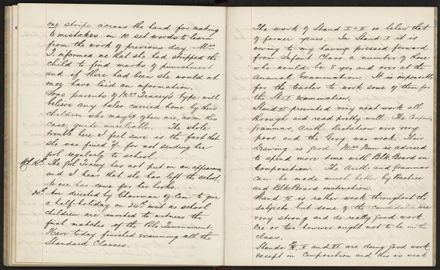 one stripe across the hand for making
6 mistakes in 10 set words to learn
from the work of previous day. Mrs
T. informed me that she had stripped the
child to find marks of punishment
and if there had been she would at
once have laid an information.
Some parents of Mrs Treacy's type will
believe any tales carried home by their
children who might when are, as in this
case, quite unreliable. The whole
trouble here I feel sure is the fact that
she was fined for not sending her
girl regularly to school.
The girl Treacy has not put in an appearance
and I hear that she has left the school.
No one has come for her books.
Am directed by Chairman of Com. to give
a half-holiday on 24th inst as school
children are invited to witness the
final matches of the Polo Tournament.
Have today finished examining all the
Standard Classes.
The work of Stand I & II is below that
of former years. In Stand I it is
owing to my having pressed forward
from Infant Class a number of those
who would be 8 yrs and over at the
Annual Examination. It is impossible
for the teacher to work some of them for
the St I examination.
Stand II presented very neat work all
through and read pretty well. The
grammar, Arith, Recitation were very
poor and the Geog was weak. This
Drawing is good. Mrs is advised
to spend more time with Blk Board in
Composition. The Arith and grammar
can be made much better by Practice
and Blk Board instruction.
Stand IV is rather weak throughout the
subjects but some of the candidates are
very strong and do really good work
One or two however ought not to be in the
class.
Stands V and VI are doing good work
except in Composition and this is weak